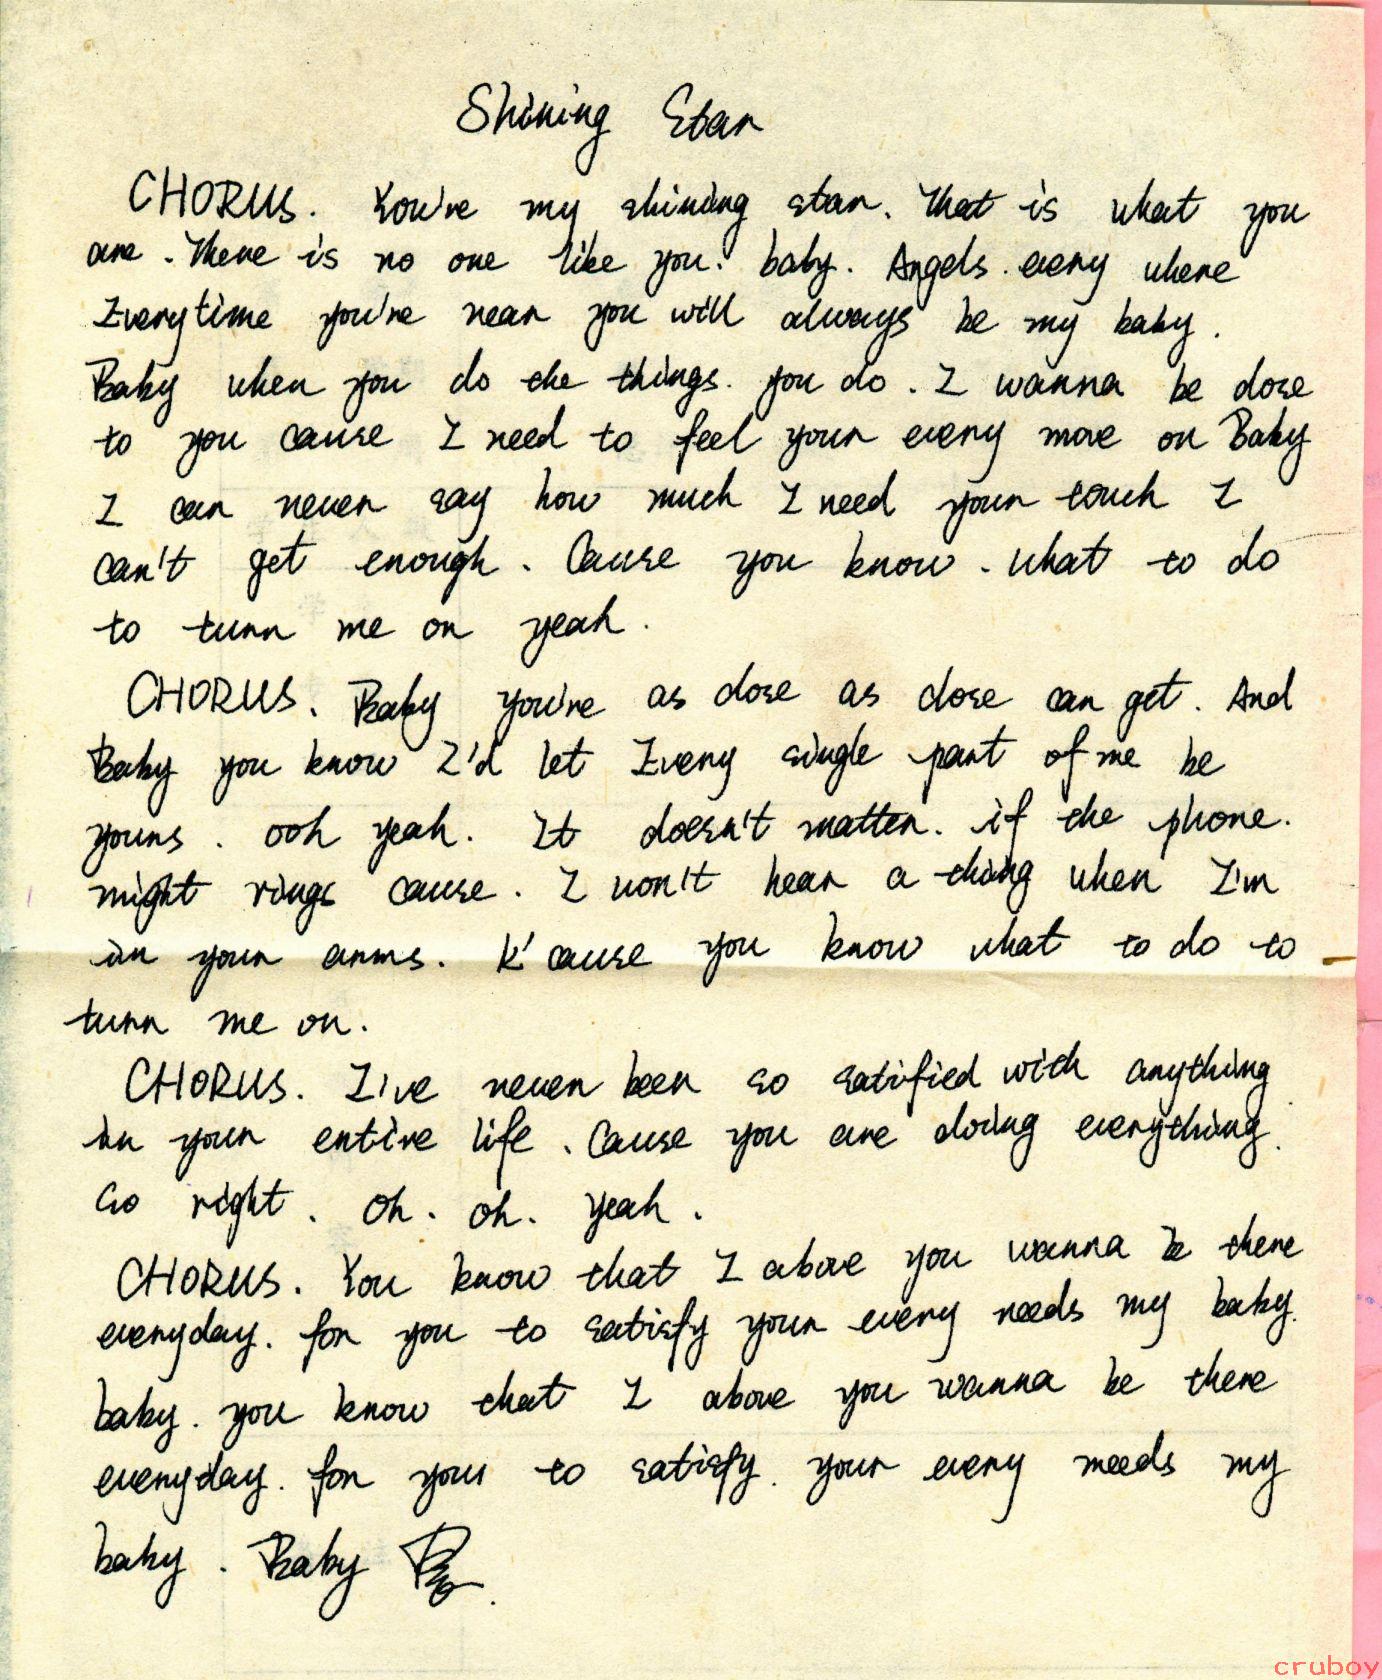 Shining Star
CHORUS. You're my shining star. That is what you
are. There is no one like you. baby. Angels. every where
Everytime you're near you will always be my baby.
Baby when you do the things. you do. I wanna be close
to you cause I need to feel your every move on Baby
I can never say how much I need your touch I
can't get enough. Cause you know. what to do
to turn me on yeah.
CHORUS. Baby you're as close as close can get. And
Baby you know I'd let Every single part of me be
yours. ooh yeah. It doesn't matter. if the phone.
might rings cause. I won't hear a thing when I'm
in your arms. K'cause you know what to do to
turn me on.
CHORUS. I've never been so satified with anything
in your entire life. Cause you are doing everything.
so right. oh. oh. yeah.
CHORUS. You know that I above you wanna be there
everyday. for you to satisfy your every needs my baby.
baby. you know that I above you wanna be there
everyday. for your to satisfy. your every needs my
baby. Baby
cruboy